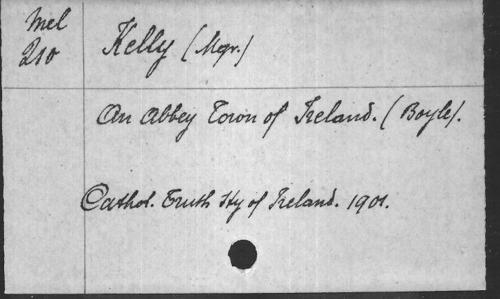 Mel
210
Kelly (Mgr.)
An Abbey Town of Ireland. (Boyle).
Cathol. Truth Sty of Ireland. 1901.